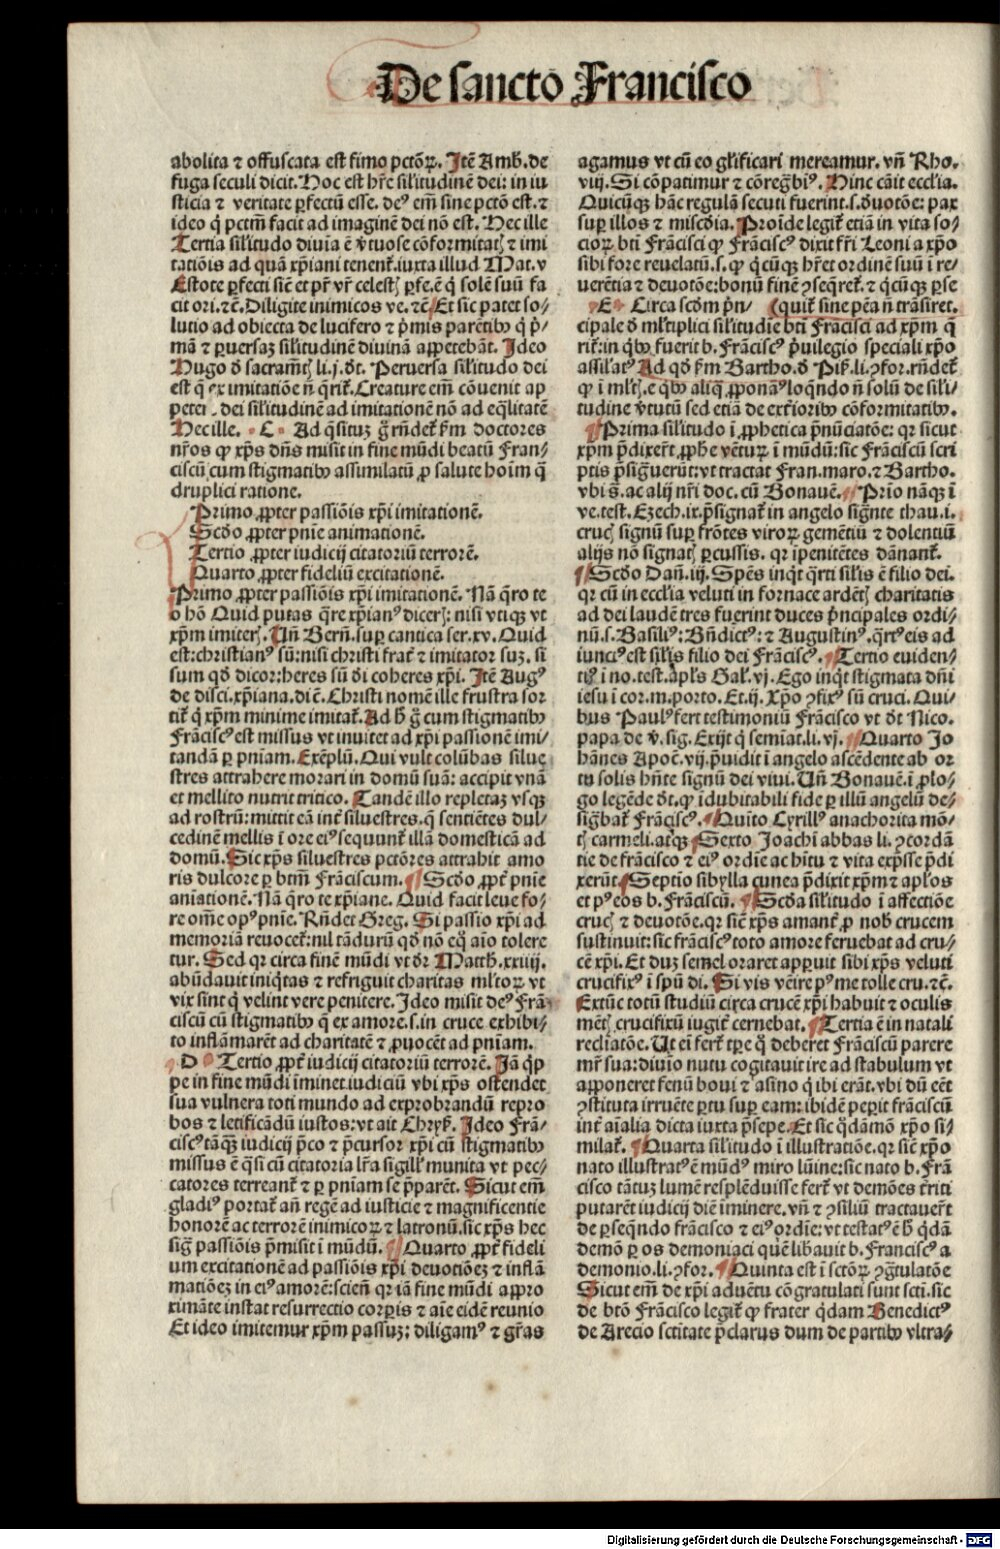 De sancto Francisco
abolita ⁊ offuscata est fimo pctōꝝ. Itē Amb. de
fuga seculi dicit. Hoc est hr̄e sil'itudinē dei: in iu
sticia ⁊ veritate ꝑfectū esse. deꝰ em̄ sine pctō est. ⁊
ideo q̇ pctm̄ facit ad imaginē dei nō est. Hec ille
Tertia sil'itudo diuīa ē v̓tuose cōformitatꝭ ⁊ imi
tatiōis ad quā xp̄iani tenent̄. iuxta illud Mat. v
Estote ꝑfecti sic̄ et pr̄ vr̄ celestꝭ ꝑfe. ē q̇ solē suū fa
cit ori. ⁊c̄. Diligite inimicos ve. ⁊c̄. Et sic patet so/
lutio ad obiecta de lucifero ⁊ p̓mis parētibꝰ q̇ p̓/
mā ⁊ ꝑuersaꝫ sil'itudinē diuinā appetebāt. Ideo
Hugo d̓ sacram̄tꝭ li. j. dt̄. Peruersa sil'itudo dei
est q̄ ex imitatiōe n̄ q̄rit̄. Creature em̄ cōuenit ap
petere dei sil'itudinē ad imitationē nō ad eq̄litatē
Hec ille. C Ad q̄situꝫ g̊ rn̄det̄ ẜm doctores
nr̄os ꝙ xp̄s dn̄s misit in fine mūdi beatū Fran/
ciscū cum stigmatibꝰ assimilatū ꝓ salute hoīm q̄
druplici ratione.
Primo ꝓpter passiōis xp̄i imitationē.
Scd̓o ꝓpter pn̄ie animationē.
Tertio ꝓpter iudicij citatoriū terrorē.
Quarto ꝓpter fideliū excitationē.
Primo ꝓpter passiōis xp̄i imitationē. Nā q̄ro te
o hō Quid putas q̄re xp̄ianꝰ dicerꝭ: nisi vtiqꝫ vt
xp̄m imiterꝭ. Un̄ Bern̄. suꝑ cantica ser. xv. Quid
est: christianꝰ sū: nisi christi frat̄ ⁊ imitator suꝫ. si
sum qd̓ dicor: heres sū di coheres xp̄i. Itē Augꝰ
de disci. xp̄iana. di. ē. Christi nomē ille frustra sor
tit̄ q̇ xp̄m minime imitat̄. Ad h̓ g̊ cum stigmatibꝰ
Frāciscꝰ est missus vt inuitet ad xp̄i passionē imi/
tandā ꝑ pn̄iam. Exēplū. Qui vult colūbas silue
stres attrahere morari in domū suā: accipit vnā
et mellito nutrit tritico. Tandē illo repletaꝫ vsqꝫ
ad rostrū: mittit eā int̄ siluestres. q̄ sentiētes dul/
cedinē mellis ī ore eiꝰ sequunt̄ illā domesticā ad
domū. Sic xp̄s siluestres pctōres attrahit amo
ris dulcore ꝑ btm̄ Frāciscum. Scd̓o ꝓpt̄ pn̄ie
aniatiōnē. Nā q̄ro te xp̄iane. Quid facit leue fo/
re om̄e opꝰ pn̄ie. Rn̄det Greg. Si passio xp̄i ad
memoriā reuocet̄: nil tā durū qd̓ nō eq̄ aīo tolere
tur. Sed qr circa finē mūdi vt dr̄ Matth. xxiiij.
abūdauit iniq̄tas ⁊ refriguit charitas ml'toꝝ vt
vix sint q̇ velint vere penitere. Ideo misit deꝰ Frā/
ciscū cū stigmatibꝰ q̄ ex amore. s. in cruce exhibi/
to inflāmarēt ad charitatē ⁊ ꝓuocēt ad pn̄iam.
D Tertio ꝓpt̄ iudicij citatoriū terrorē. Iā q̄ꝓ
pe in fine mūdi īminet iudiciū vbi xp̄s ostendet
sua vulnera toti mundo ad exprobrandū repro
bos ⁊ letificādū iustos: vt ait Chryꝫ. Ideo Frā/
ciscꝰ tāqꝫ iudicij p̄co ⁊ p̄cursor xp̄i cū stigmatibꝰ
missus ē q̄si cū citatoria lr̄a sigill' munita vt pec/
catores terreant̄ ⁊ ꝑ pn̄iam se p̄parēt. Sicut em̄
gladiꝰ portat̄ an̄ regē ad iusticie ⁊ magnificentie
honorē ac terrorē inimicoꝝ ⁊ latronū. sic xp̄s hec
sig̅ passiōis p̄misit ī mūdū. Quarto ꝓpt̄ fideli
um excitationē ad passiōis xp̄i deuotiōeꝫ ⁊ inflā
matiōeꝫ in eiꝰ amorē: scien̄ qr iā fine mūdi appro
ximāte instat resurrectio corꝑis ⁊ aīe eidē reunio
Et ideo imitemur xp̄m passuꝫ: diligamꝰ ⁊ gr̄as
agamus vt cū eo gl'ificari mereamur. vn̄ Rho.
viij. Si cōpatimur ⁊ cōreg̅bꝰ. Hinc cāit eccl'ia.
Quicūqꝫ hāc regulā secuti fuerint. s. d̓uotōe: pax
suꝑ illos ⁊ miscd̓ia. Proīde legit̄ etiā in vita so/
cioꝝ bti Frācisci ꝙ Frāciscꝰ dixit fr̄i Leoni a xp̄o
sibi fore reuelatū. s. ꝙ q̇cūqꝫ hr̄et ordinē suū ī re/
uerētia ⁊ deuotōe: bonū finē ꝯseq̄ret̄. ⁊ q̇cūqꝫ ꝑse
E Circa scd̓m p̓n/ (quit̄ sine pēa n̄ trāsiret.
cipale d̓ ml'tiplici sil'itudīe bti̅ Frācisci ad xp̄m q̄
rit̄: in q̇bꝰ fuerit b. Frāciscꝰ p̓uilegio speciali xp̄o
assilatꝰ Ad qd̓ ẜm Bartho. d̓ Pis̄. li. ꝯfor. rn̄det̄
ꝙ ī ml'tꝭ. e q̇bꝰ aliq̄ ꝓponāꝰ loq̄ndo n̄ solū de sili/
tudine v̓tutū sed etiā de ext̄ioribꝰ cōformitatibꝰ.
Prima sil'itudo ī ꝓphetica p̄nūciatōe: qr sicut
xp̄m p̄dixer̄t. ꝓphe vētuꝝ ī mūdū: sic Frāciscū scri
ptis p̄sig̅uerūt: vt tractat Fran. maro. ⁊ Bartho.
vbi s̄. ac alij nr̄i doc. cū Bonauē. Prīo nāqꝫ ī
ve. test. Ezech. ix. p̄signat̄ in angelo sig̅nte thau. i.
crucꝭ signū suꝑ frōtes viroꝝ gemētiū ⁊ dolentiū
alijs nō signatꝭ ꝑcussis. qr īpenitētes dānant̄.
Scd̓o Dan̄. iij. Spēs inq̇t q̄rti sil'is ē filio dei.
qr cū in eccl'ia veluti in fornace ardētꝭ charitatis
ad dei laudē tres fuerint duces p̓ncipales ordi/
nū. s. Basiliꝰ: Bn̄dictꝰ: ⁊ Augustinꝰ. q̄rtꝰ eis ad
iunctꝰ est sil'is filio dei Frāciscꝰ. Tertio euiden/
tiꝰ ī no. test. apl's Gal'. vj. Ego inq̇t stigmata dn̄i
iesu ī cor. m. porto. Et. ij. Xp̄o ꝯfixꝰ sū cruci. Qui/
bus Paulꝰ fert testimoniū Frācisco vt dt̄ Nico.
papa de v̓. sig. Exijt q̇ semīat. li. vj. Quarto Jo
hānes Apoc̄. vij. p̄uidit ī angelo ascēdente ab or
tu solis hn̄te signū dei viui. Un̄ Bonauē. ī ꝓlo/
go legēde dt̄. ꝙ īdubitabili fide ꝑ illū angelū de/
sig̅bat̄ Frāciscꝰ. Quīto Cyrillꝰ anachorita mō/
tꝭ carmeli. atqꝫ Sexto Joachī abbas li. ꝯcordā
tie de frācisco ⁊ eiꝰ ordīe ac hītu ⁊ vita exp̄sse p̄di
xerūt. Septīo sibylla cumea p̄dixit xp̄m ⁊ apl'os
et pꝰ eos b. Frāciscū. Scd̓a sil'itudo ī affectiōe
crucꝭ ⁊ deuotōe. qr sic̄ xp̄s amant̄ ꝓ nob̓ crucem
sustinuit: sic frāciscꝰ toto amore feruebat ad cru/
cē xp̄i. Et duꝫ semel oraret apꝑuit sibi xp̄s veluti
crucifixꝰ ī spū di. Si vis veīre pꝰ me tolle cru. ⁊c̄.
Extūc totū studiū circa crucē xp̄i habuit ⁊ oculis
mētꝭ crucifixū iugit̄ cernebat. Tertia ē in natali
recl'iatōe. Ut ei fert̄ tꝑe q̊ deberet Frāciscū parere
mr̄ sua: diuīo nutu cogitauit ire ad stabulum vt
apponeret fenū boui ⁊ asino q̇ ibi erāt. vbi dū eēt
ꝯstituta irruēte ꝑtu suꝑ eam: ibidē peꝑit frāciscū
int̄ aīalia dicta iuxta p̄sepe. Et sic q̊dāmō xp̄o si/
milat̄. Quarta sil'itudo ī illustratiōe. qr sic̄ xp̄o
nato illustratꝰ ē mūdꝰ miro lūīe: sic nato b. Frā
cisco tātuꝫ lumē resplēduisse fert̄ vt demōes ēriti
putarēt iudicij diē īminere. vn̄ ⁊ ꝯsiliū tractauer̄t
de ꝑseq̄ndo frācisco ⁊ eiꝰ ordīe: vt testatꝰ ē b̓ q̇dā
demō ꝑ os demoniaci quē lib̓auit b. Franciscꝰ a
demonio. li. ꝯfor. Quinta est ī sctōꝝ ꝯg̅tulatōe
Sicut em̄ de xp̄i aduētu cōgratulati sunt scti. sic
de btō Frācisco legit̄ ꝙ frater q̇dam Benedictꝰ
de Arecio sctitate p̄clarus dum de partibꝰ vltra/
Digitalisierung gefördert durch die Deutsche Forschungsgemeinschaft - DFG